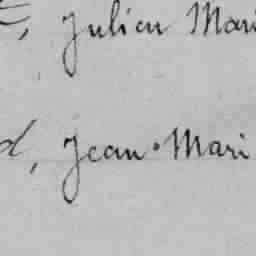 , Julien Mari
d, Jean-Mari